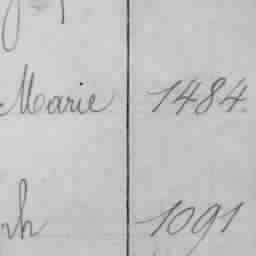 Marie 1484.
1091